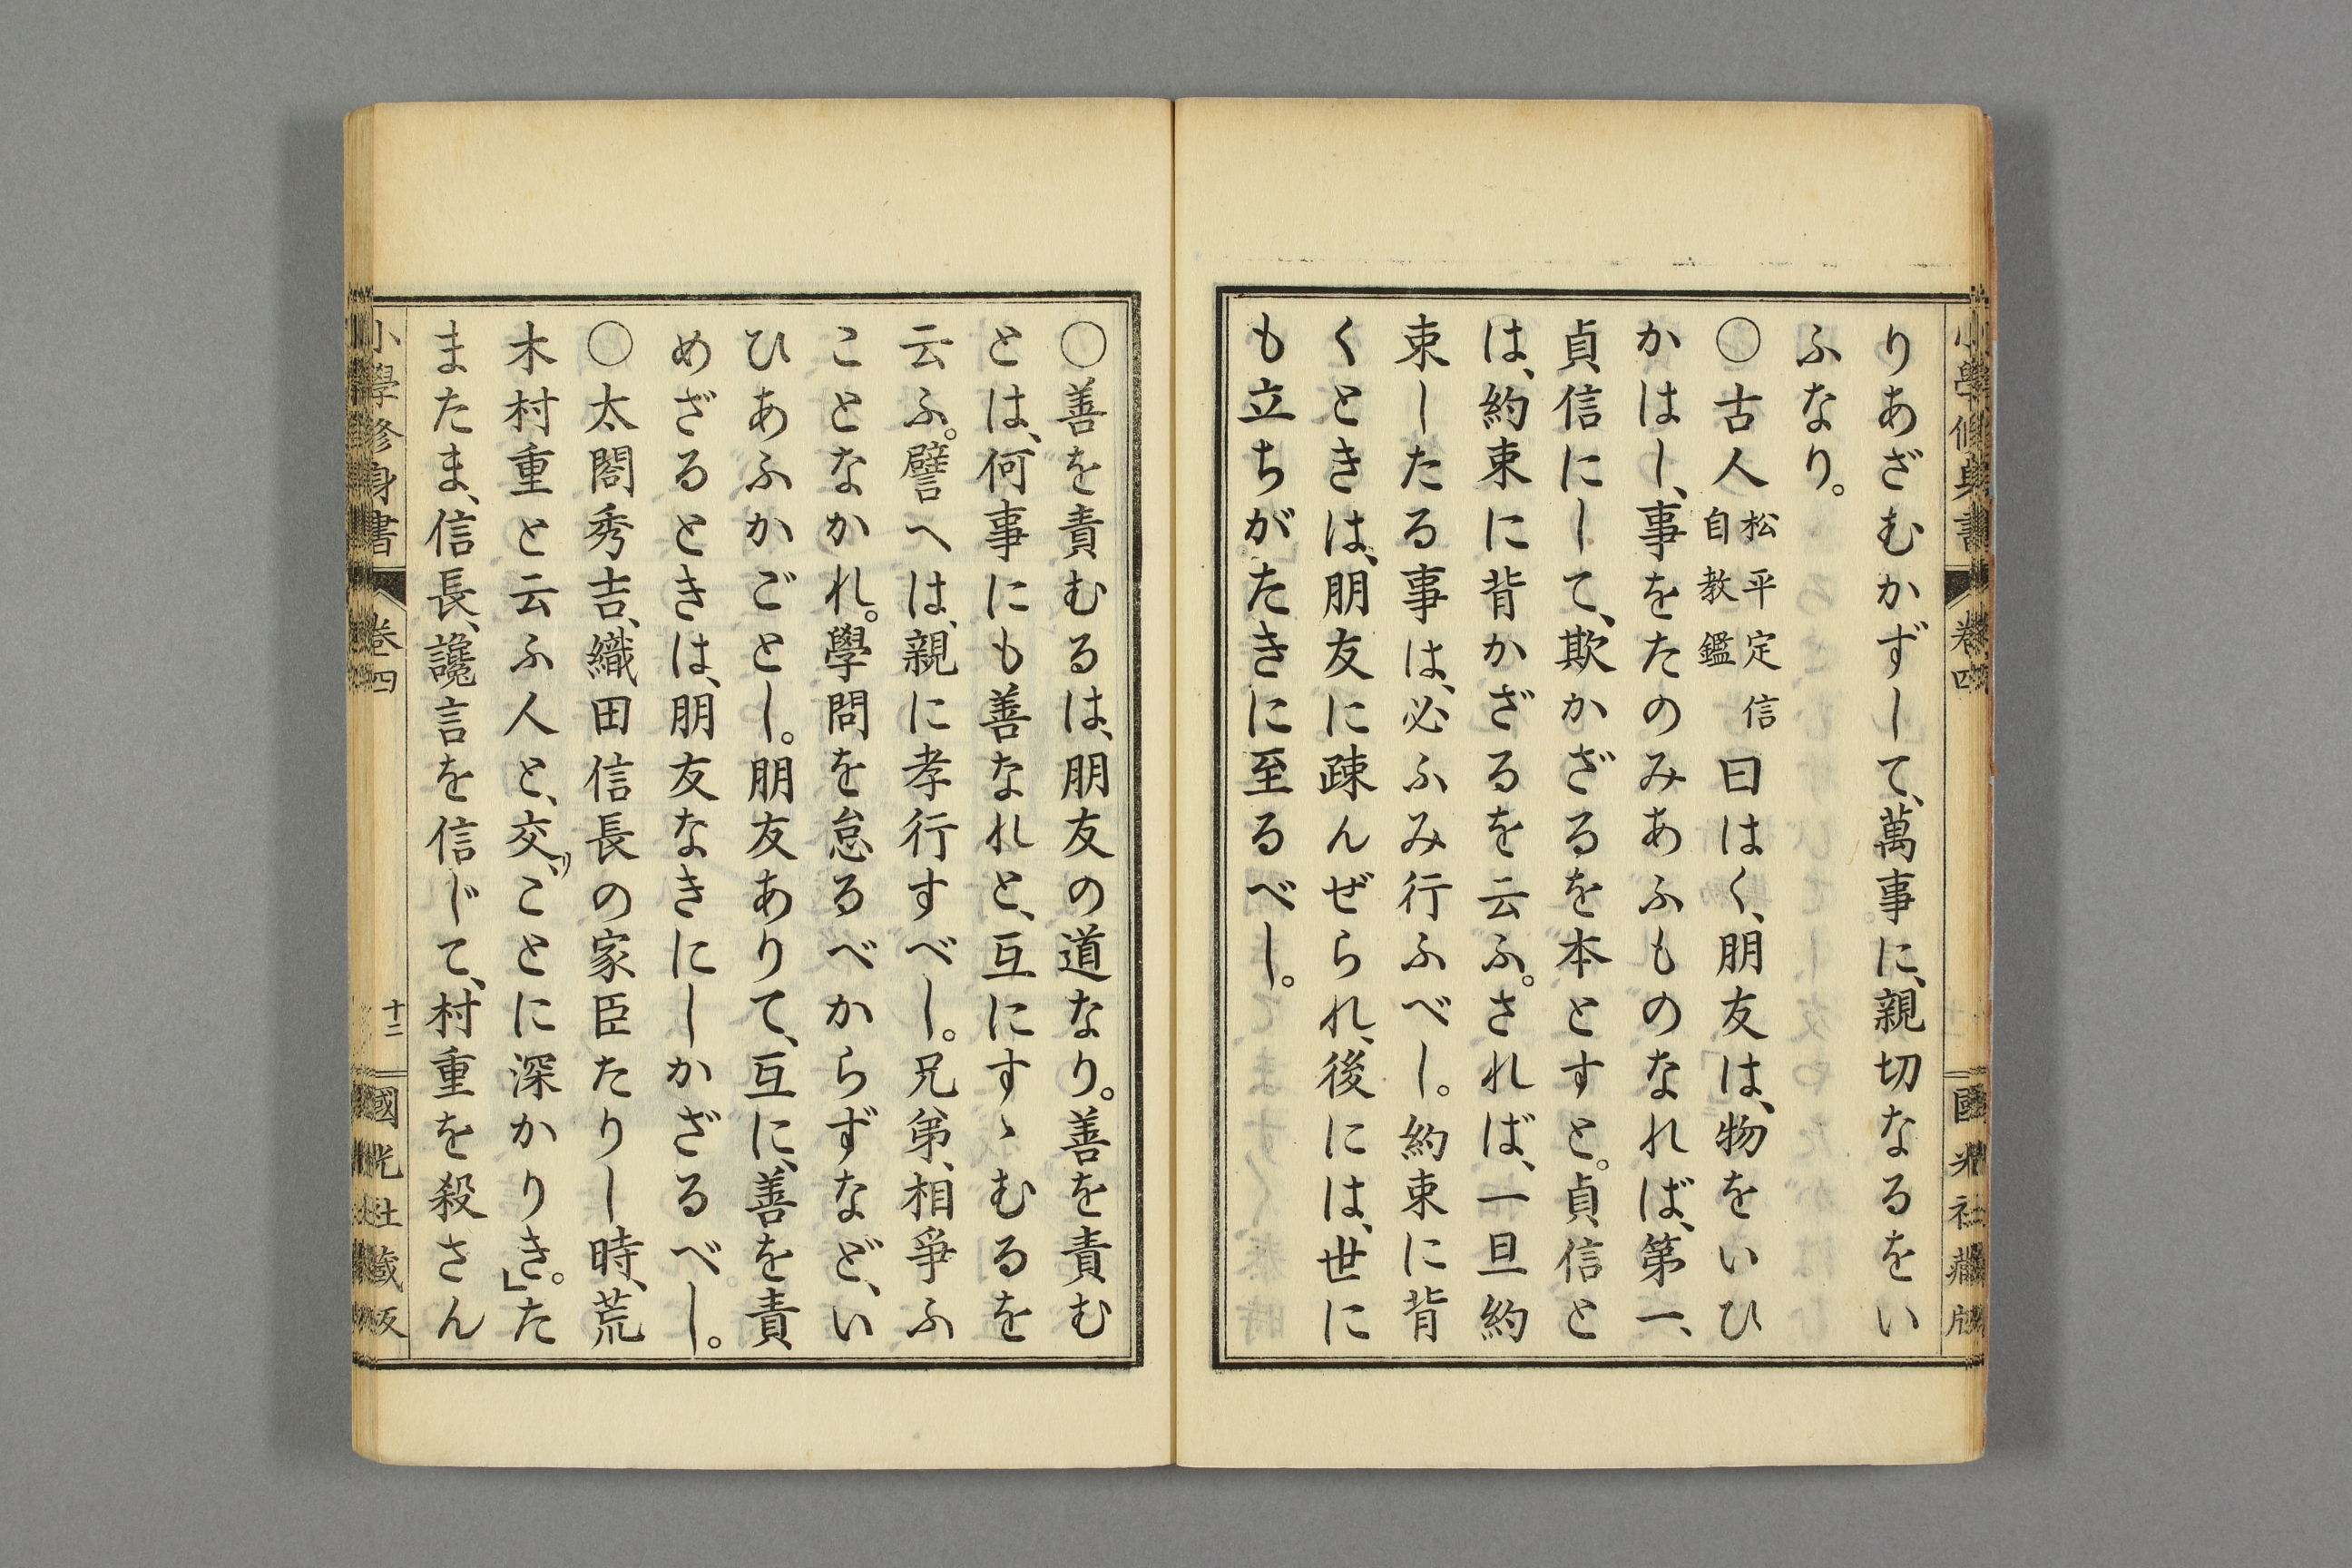 りあざむかずして、萬事に、親切なるをい
ふなり。
〇古人松平定信自教鑑曰はく、朋友は、物をいひ
かはし、事をたのみあふものなれば、第一、
貞信にして、欺かざるを本とすと。貞信と
は、約束に背かざるを云ふ。されば、一旦約
束したる事は、必ふみ行ふべし。約束に背
くときは、朋友に疎んぜられ、後には、世に
も立ちがたきに至るべし。
〇善を責むるは、朋友の道なり。善を責む
とは、何事にも善なれと、互にすゝむるを
云ふ。譬へは、親に孝行すべし。兄弟、相爭ふ
ことなかれ。學問を怠るべからずなど、い
ひあふかごとし。朋友ありて、互に、善を責
めざるときは、朋友なきにしかざるべし。
〇太閤秀吉、織田信長の家臣たりし時、荒
木村重と云ふ人と、交ヿことに深かりき。」た
またま、信長、讒言を信じて、村重を殺さん
小學修身書 卷四 十二 國光社藏版